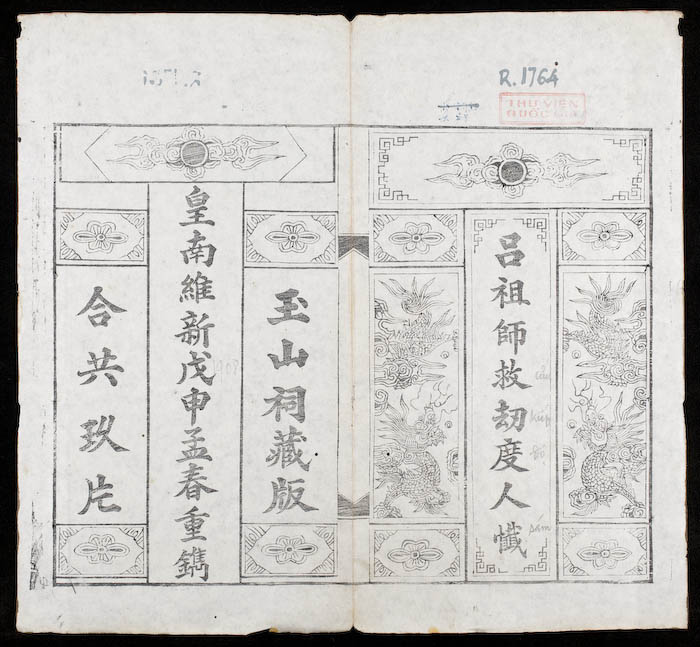 R.1764
THƯ VIỆN
QUỐC GIA
呂祖師救刼度人懺
cứu
kiếp
độ
sám
玉山祠藏版
皇南維新戊申孟春重鐫
1908
合共玖片